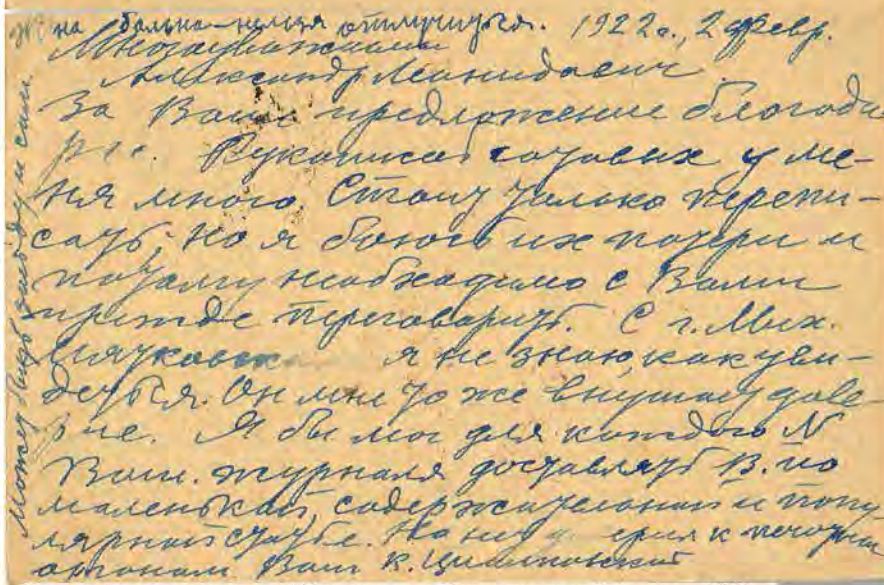 Жена больна – нельзя отлучиться. 1922 г., 2 февр.
Многоуважаемый
Александр Леонидович.
За Ваше предложение благода-
рю. Рукописей готовых у ме-
ня много. Стоит только перепи-
сать, но я боюсь их потери и
потому необходимо с Вами
прежде переговорить. С г. Мих.
я не знаю, как уви-
деться. Он мне тоже внушает дове-
рие. Я бы мог для каждого N
Ваш. журнала доставлять В. по
маленькой, содержательной и попу-
лярной статье. к печатным
органам. Ваш К. Циолковский
Может быть и сам.